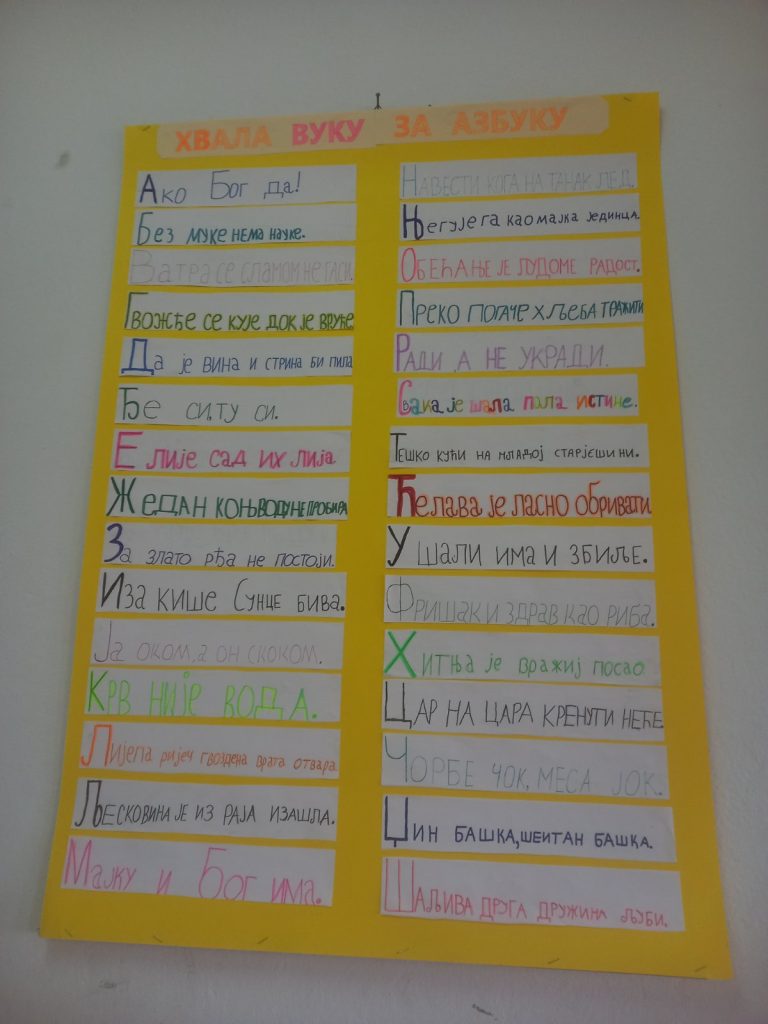 ХВАЛА ВУКУ ЗА АЗБУКУ
Ако Бог да!
Без муке нема науке.
Ватра се сламом не гаси.
Гвожђе се кује док је вруће.
Да је вина и стрина би пила
Ђе си, ту си.
Е лије сад их лија
Жедан коњ воду не пробира
За злато рђа не постоји.
Иза кише Сунце бива.
Ја оком, а он скоком.
Крв није вода.
Лијепа ријеч гвоздена врата отвара.
Љесковина је из раја изашла.
Мајку и Бог има.
Навести кога на танак лед.
Његује га као мајка јединца.
Обећање је лудоме радост.
Преко погаче хљеба тражити
Ради, а не укради.
Свака је шала пола истине.
Тешко кући на млађој старјешини.
Ћелава је ласно обривати
У шали има и збиље.
Фришак и здрав као риба.
Хитња је вражиј посао
Цар на цара кренути неће
Чорбе чок, меса јок.
Џин башка, шеитан башка.
Шаљива друга дружина љуби.